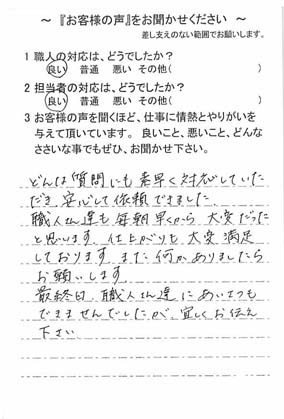 ～ 『お客様の声』をお聞かせください ～
差し支えのない範囲でお願いします。
1 職人の対応は、どうでしたか？
良い 普通 悪い その他( )
2 担当者の対応は、どうでしたか？
良い 普通 悪い その他( )
3 お客様の声を聞くほど、仕事に情熱とやりがいを
与えて頂いています。 良いこと、悪いこと、どんな
ささいな事でもぜひ、お聞かせ下さい。
どんな質問にも素早く対応していた
だき、安心して依頼できました。
職人さん達も毎朝早くから大変だった
と思います。仕上がりも大変満足
しております。また何かありましたら
お願いします
最終日、職人さん達にあいさつも
できませんでしたが、宜しくお伝え
下さい